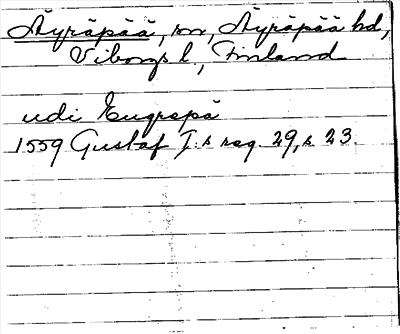 Äyräpää, sn, Äyräpää hd,
Viborgs l., Finland
udi Eugrepä
1559 Gustaf I:s reg. 29, s 23.